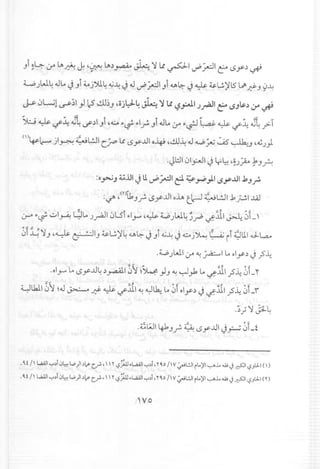 فهي دعوى منع التعرض الحكمي مما لا يتعلق مقصودها بعين، بل بغيرها من جاه أو
بدن وغيرهما كالإشاعة عليه في جاهه أو التعرض له في بدنه بالملازمة أو في ماله بالمعارضة
فهي من دعاوى منع الضرر المعنوي مما لا يتعلق بالحيازة، وذلك كما لو ادعى إنسان على
آخر بأنه يدعي عليه غصباً لشيء من ماله أو شراء شيء منه، أو ادعى بأنه يدعي عليه قتلاً
لمورثه، ويطلب كف تعرضه له بذلك، فهذه الدعوى مما صرح الشافعية بجواز سماعها(١)
بشروط مقررة، بيانها في العنوان التالي:
شروط الدعوى الموضوعية لمنع التعرض لما في الذمة ونحوه:
لقد اشترط الشافعية لسماع هذه الدعوى شروطاً(٢)، هي:
١- أن يلحق المدعي ضرر بالمعارضة عليه، سواء أكان الضرر مالياً بفوات شيء من
مصالحه المالية أم نفسياً بملازمته له في بدنه أم جاهه بالإشاعة والتشنيع عليه، ولا بد أن
يذكر في دعواه ما استضر به من المعارضة.
٢- أن يذكر المدعي ما طولب به وعومل لأجله لأن المقصود بالدعوى ما سواه.
٣- أن يذكر المدعي في دعواه أن ما يطالبه به المدعى عليه غير مستحق له؛ لأن المطالبة
بالحق لا ترد.
٤- أن تستوفي الدعوى بقية شروطها العامة.
(١) الحاوي الكبير في فقه مذهب الإمام الشافعي ١٧/ ٢٩٥، أدب القضاء للغزي ١١٢، شرح عماد الرضا ببيان أدب القضا ١/ ٩٤.
(٢) الحاوي الكبير في فقه مذهب الإمام الشافعي ١٧/ ٢٩٥، أدب القضاء للغزي ١١٢، شرح عماد الرضا ببيان أدب القضا ١/ ٩٤.
١٧٥